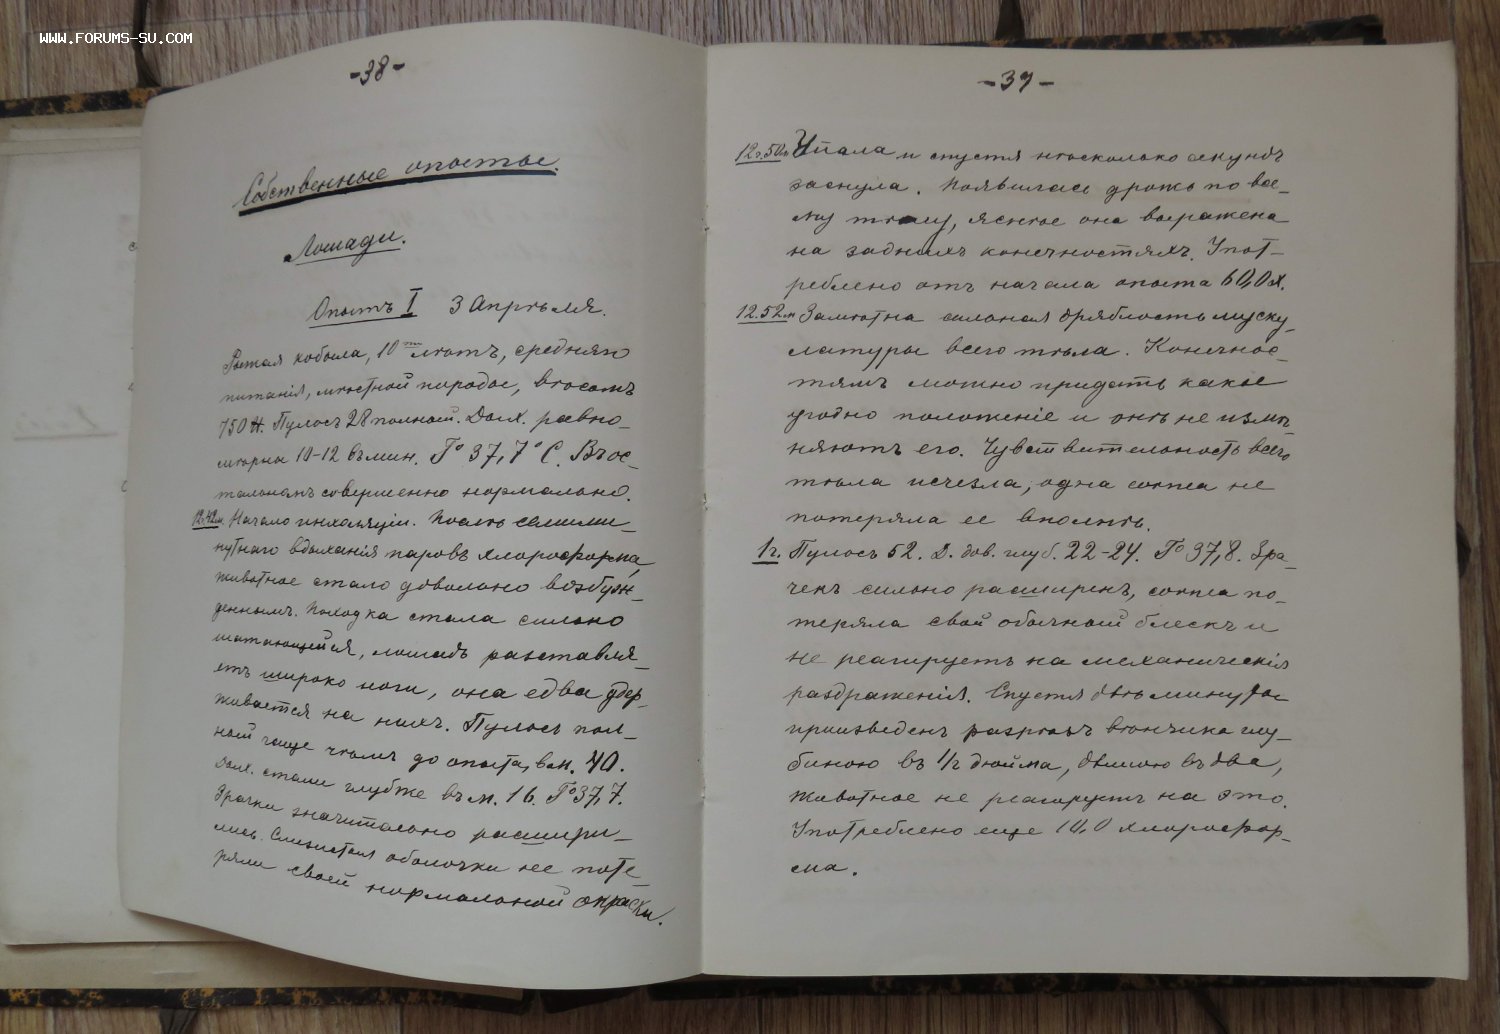 WWW.FORUMS-SU.COM
-38-
Собственные опыты.
Лошади.
Опытъ I 3 Апрѣля.
Рыжая кобыла, 10ти лѣтъ, средняго
питанія, мѣстной породы, вѣсомъ
750 ℔. Пульсъ 28 полный. Дых. равно-
мѣрны 10-12 въ мин. Т° 37,7° С. Въ ос-
тальномъ совершенно нормальна.
12.42м Начало ингаляціи. Послѣ семими-
нутнаго вдыханія паровъ хлороформа,
животное стало довольно возбуж-
деннымъ. Походка стала сильно
шатающейся, лошадь разставля-
етъ широко ноги, она едва удер-
живается на нихъ. Пульсъ пол-
ный чаще чѣмъ до опыта, в м. 40.
Дых. стали глубже въ м. 16. Т° 37,7.
Зрачки значительно расшири-
лись. Слизистыя оболочки не поте-
ряли своей нормальной окраски.
-39-
12ч.50м Упала и спустя нѣсколько секундъ
заснула. Появилась дрожь по все-
му тѣлу, яснѣе она выражена
на заднихъ конечностяхъ. Упот-
реблено отъ начала опыта 60,0 х.
12.52м Замѣтна сильная дряблость муску-
латуры всего тѣла. Конечнос-
тямъ можно придать какое
угодно положеніе и онѣ не измѣ-
няютъ его. Чувствительность всего
тѣла исчезла, одна cornea не
потеряла ее вполнѣ.
1ч. Пульсъ 52. Д. дов. глуб. 22-24. Т° 37,8. Зра-
чекъ сильно расширенъ, cornea по-
теряла свой обычный блескъ и
не реагируетъ на механическія
раздраженія. Спустя двѣ минуты
произведенъ разрѣзъ вѣнчика глу-
биною въ 1/2 дюйма, длиною въ два,
животное не реагируетъ на это.
Употреблено еще 10,0 хлорофор-
ма.